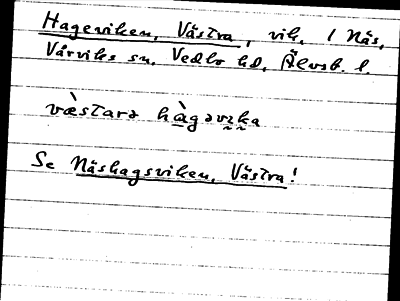 Hageviken, Västra, vik, i Näs,
Vårviks sn, Vedbo hd, Älvsb. l.
væ̀starə hàgəvɪ̰ḵa
Se Näshagsviken, Västra!